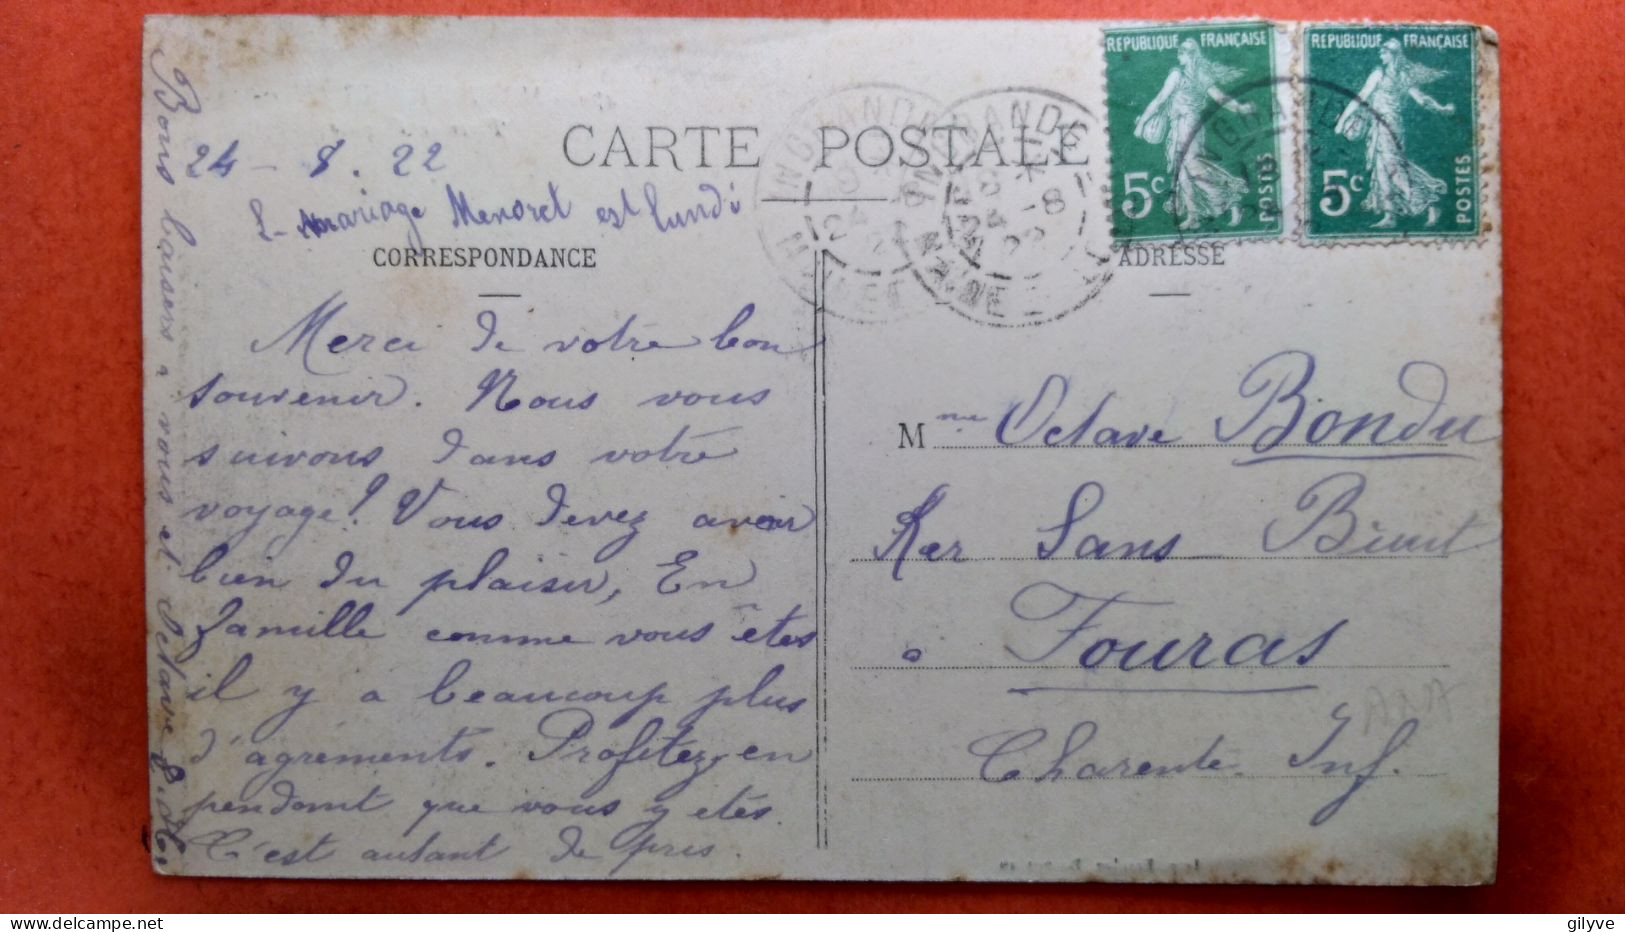 RÉPUBLIQUE FRANÇAISE
5c
POSTES
RÉPUBLIQUE FRANÇAISE
5c
POSTES
CARTE POSTALE
INGRANDE
24-8
22
MAINE ET
24 - 8 . 22
mariage Menoret est lundi
CORRESPONDANCE
ADRESSE
Merci de votre bon
souvenir. Nous vous
suivons dans votre
voyage! Vous devez avoir
bien du plaisir, En
famille comme vous êtes
il y a beaucoup plus
d'agréments. Profitez-en
pendant que vous y etes.
C'est autant de pris.
Bons baisers a vous et Octave
Mme Octave Bondu
Ker Sans
à Fouras
Charente Inf.
gilyve